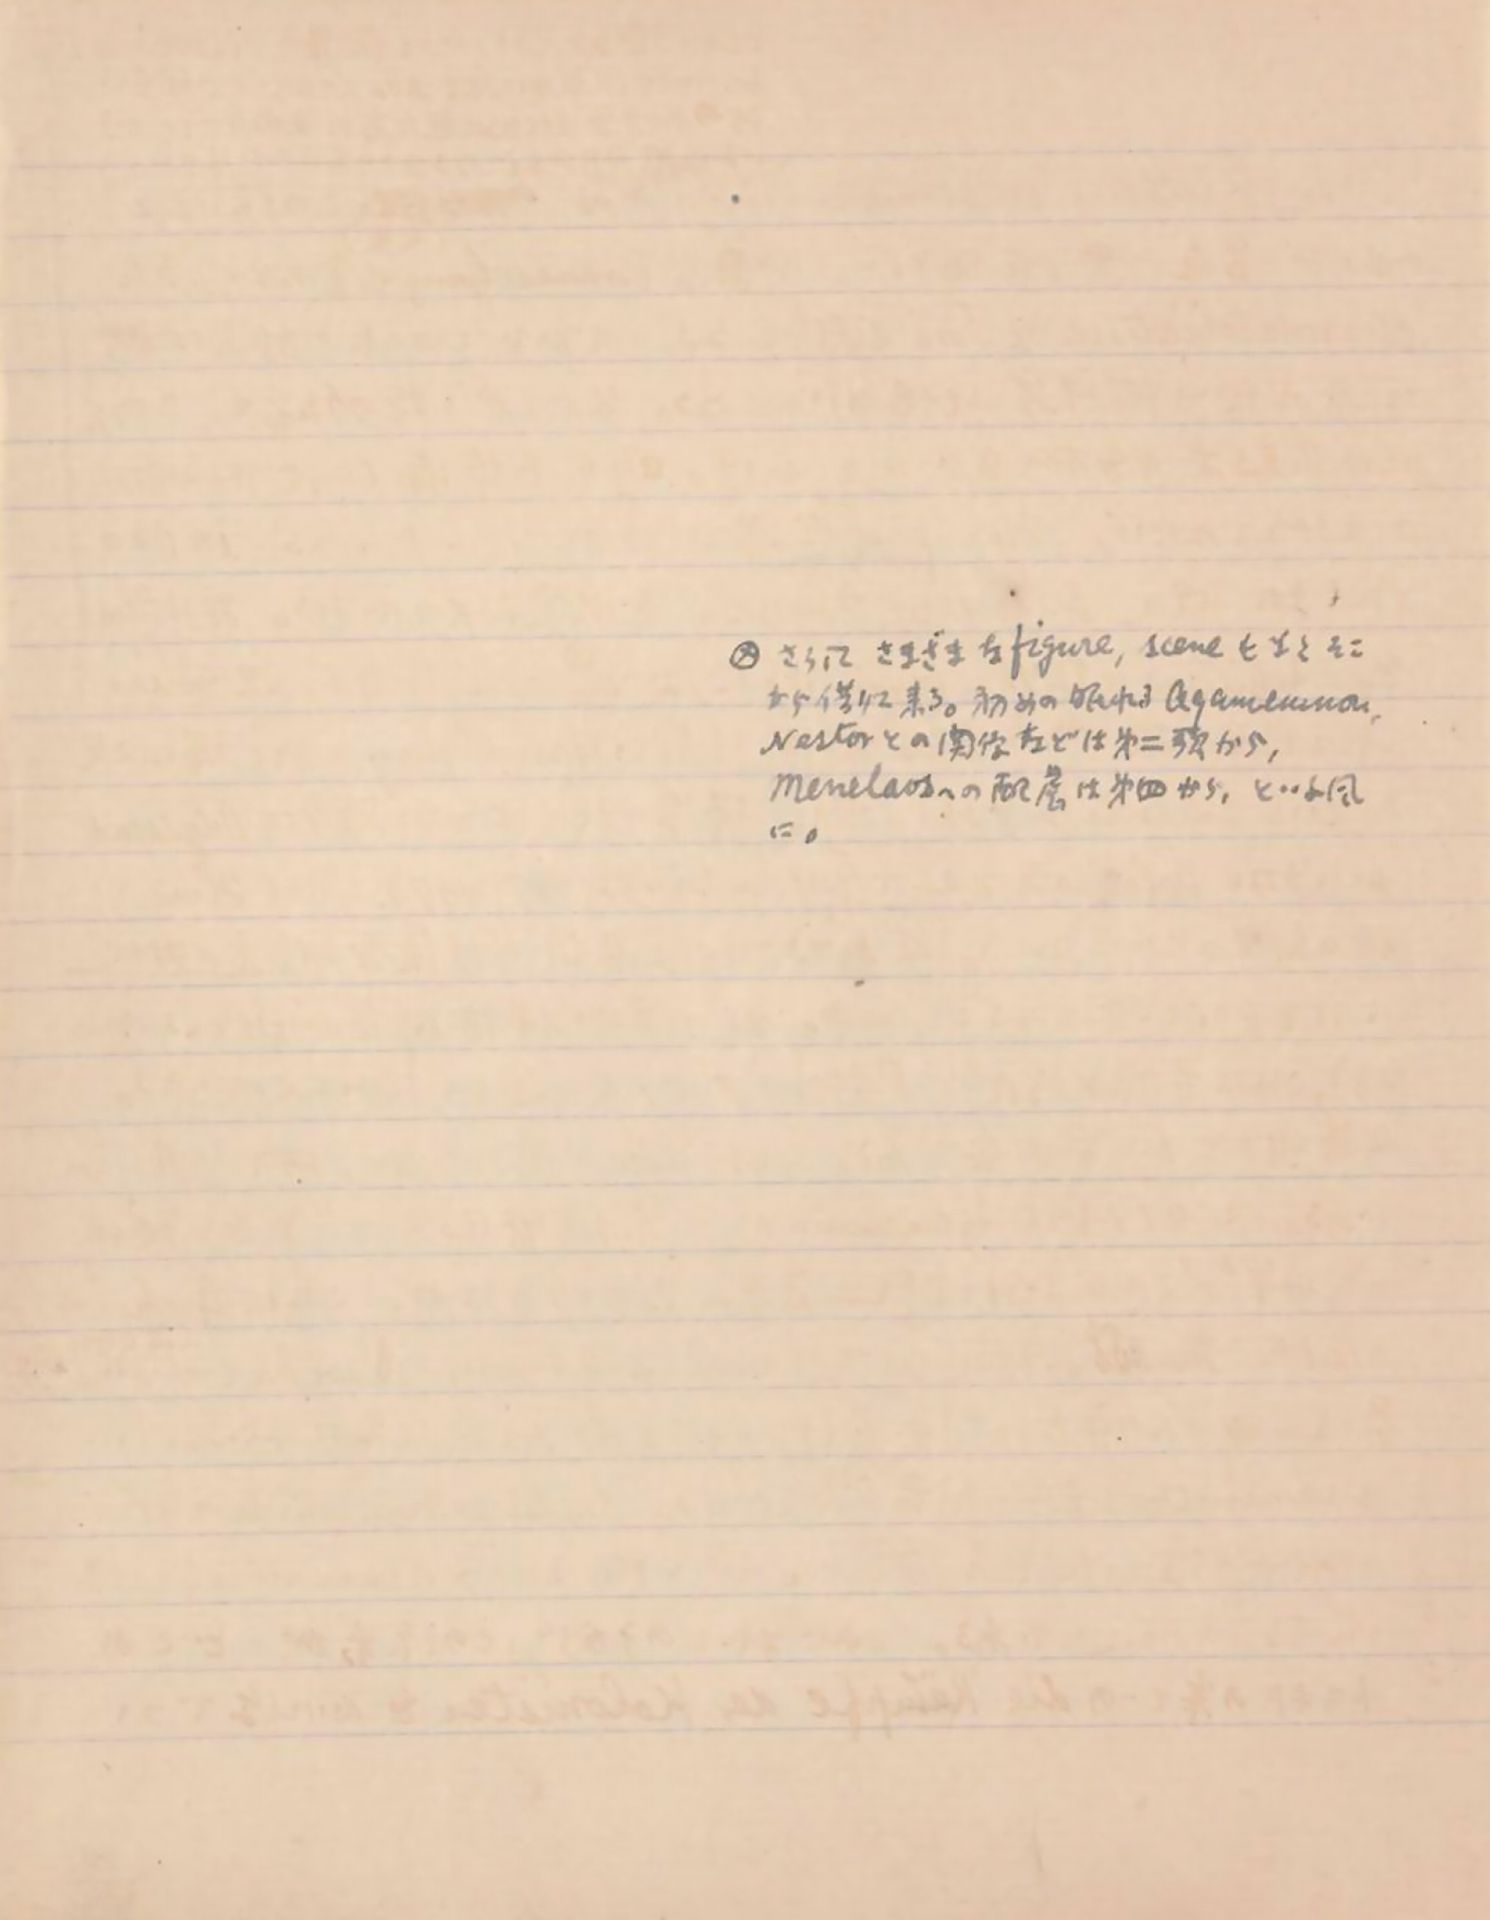 ⊗ さらに さまざまな figure, scene もよくそこ
から借りに来る。初めの眠れる Agamemnon,
Nestor との関係などは第二歌から,
Menelaos への配慮は第四から, といふ風
に。